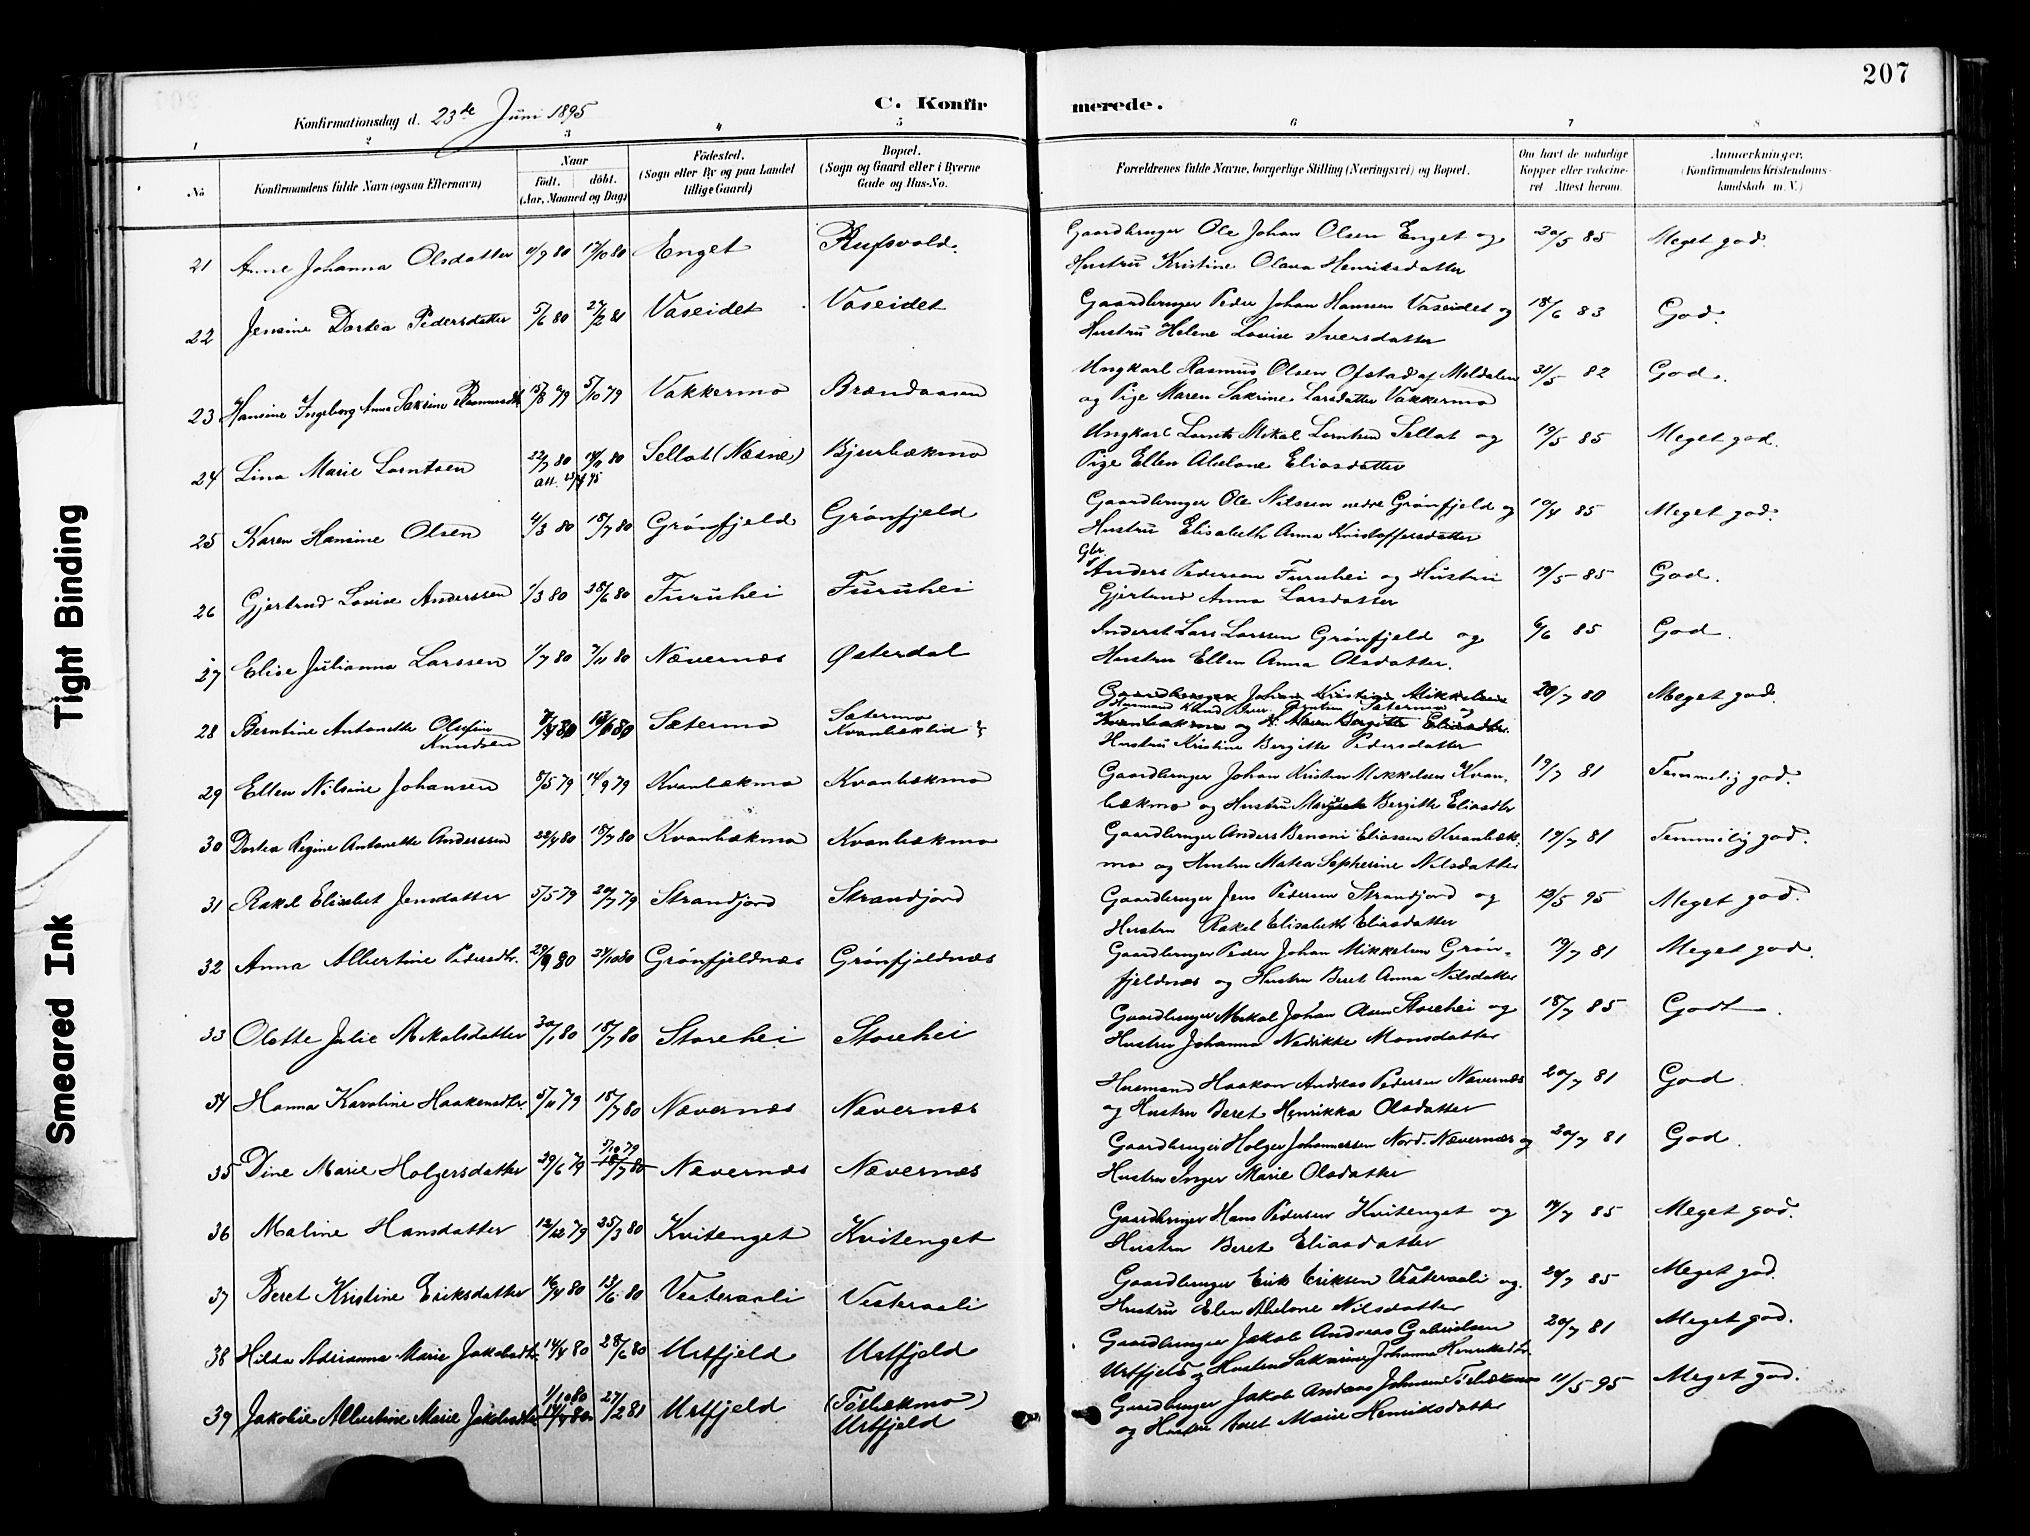 207
Konfirmationsdag d. 23de Juni 1895
C. Konfirmerede.
1 2 3 4 5 6 7 8
No
Konfirmandens fulde Navn (ogsaa Efternavn)
Naar
födt. döbt.
(Aar, Maaned og Dag)
Födested.
(Sogn eller By og paa Landet tillige Gaard)
Bopæl.
(Sogn og Gaard eller i Byerne Gade og Hus-No.
Forældrenes fulde Navne, borgerlige Stilling (Næringsvei) og Bopæl.
Om havt de naturlige Kopper eller vakcineret Attest herom.
Anmærkninger.
(Konfirmandens Kristendomskundskab m. V.)
21 Anne Johanna Olsdatter 11/9 80 17/10 80 Enget Rufsvold. Gaardbruger Ole Johan Olsen Enget og 20/5 85 Meget god.
Hustru Kristine Olava Henriksdatter
22 Jensine Dortea Pedersdatter 5/6 80 27/2 81 Vaseidet Vaseidet Gaardbruger Peder Johan Hansen Vaseidet og 18/6 83 God.
Hustru Helene Lovise Iversdatter
23 Hansine Ingeborg Anna Sakrine Rasmusdt. 15/8 79 5/10 79 Vakkermo Brændaasen Ungkarl Rasmus Olsen Ofstad af Meldalen 31/5 82 God.
og Pige Maren Sakrine Larsdatter Vakkermo
24 Lina Marie Lorntsen 22/7 80 Sellot (Næsne) Bjurbækmo Ungkarl Lornts Mikal Lorntsen Sellot og 19/5 85 Meget god.
Pige Ellen Abelone Eliasdatter
25 Karen Hansine Olsen 4/3 80 18/7 80 Grönfjeld Grönfjeld Gaardbruger Ole Nilssen nedre Grönfjeld og 10/4 85 Meget god.
Hustru Elisabeth Anna Kristoffersdatter
26 Gjertrud Lovise Anderssen 1/3 80 28/6 80 Furuhei Furuhei Gbr. Anders Pedersen Furuhei og Hustru 19/5 85 God.
Gjertrud Anna Larsdatter
27 Elise Julianna Larssen 1/7 80 7/11 80 Nævernæs Østerdal Inderst Lars Larssen Grönfjeld og 6/6 85 God.
Hustru Ellen Anna Olsdatter.
28 Berntine Antonette Olufine Knudsen Sætermo Sætermo Kvanbæklid Gaardbruger Johan Kristian Mikkelsen 20/7 80 Meget god.
Kvanbækmo og H. Maren Bergitte Eliasdtr.
Hustru Kristine Bergitte Pedersdatter
29 Ellen Nilsine Johansen 8/5 79 14/9 79 Kvanbækmo Kvanbækmo Gaardbruger Johan Kristen Mikkelsen Kvan- 19/7 81 Temmelig god.
bækmo og Hustru Bergitte Eliasdtr
30 Dortea Regine Antonette Anderssen 22/4 80 18/7 80 Kvanbækmo Kvanbækmo Gaardbruger Anders Benoni Eliassen Kvanbæk- 19/7 81 Temmelig god.
mo og Hustru Matea Sepherine Nilsdatter
31 Rakel Elisabet Jensdatter 5/5 79 20/7 79 Strandjord Strandjord Gaardbruger Jens Pedersen Strandjord og 12/5 95 Meget god.
Hustru Rakel Elisabeth Eliasdatter
32 Anna Albertine Pedersdtr. 29/9 80 24/10 80 Grönfjeldnæs Grönfjeldnæs Gaardbruger Peder Johan Mikkelsen Grön- 19/7 81 Meget god.
fjeldnæs og Hustru Beret Anna Nilsdatter
33 Olette Julie Mikalsdatter 30/1 80 18/7 80 Storehei Storehei Gaardbruger Mikal Johan Olsen Storehei og 18/7 85 Godt.
Hustru Johanna Nedrikke Monsdatter
34 Hanna Karoline Haakensdtr. 5/11 79 18/7 80 Nævernæs Nævernæs Husmand Haakon Andreas Pedersen Nævernæs 20/7 81 God.
og Hustru Beret Henrikka Olsdatter
35 Dine Marie Holgersdatter 29/6 79 5/10 79 18/7 80 Nævernæs Nævernæs Gaardbruger Holger Johannessen Nord. Nævernæs og 20/7 81 God.
Hustru Inger Marie Olsdatter
36 Maline Hansdatter 12/12 79 25/3 80 Kvitenget Kvitenget Gaardbruger Hans Pedersen Kvitenget og 14/7 85 Meget god.
Hustru Beret Eliasdatter
37 Beret Kristine Eriksdatter 16/4 80 13/6 80 Vesteraali Vesteraali Gaardbruger Erik Eriksen Vesteraali og 20/7 85 Meget god.
Hustru Elen Abelone Nilsdatter
38 Hilda Adrianna Marie Jakobsdtr. 14/4 80 28/6 80 Urtfjeld Urtfjeld Gaardbruger Jakob Andreas Gabrielsen 20/7 81 Meget god.
Urtfjeld og Hustru Sakrine Johanna Henriksdtr.
39 Jakobie Albertine Marie Jakobsdtr. 1/10 80 27/2 81 Urtfjeld (Tösbækmo) Urtfjeld Gaardbruger Jakob Andreas Johnsen Tösbækmo 11/5 95 Meget god.
og Hustru Beret Marie Henriksdatter
Tight Binding
Smeared Ink